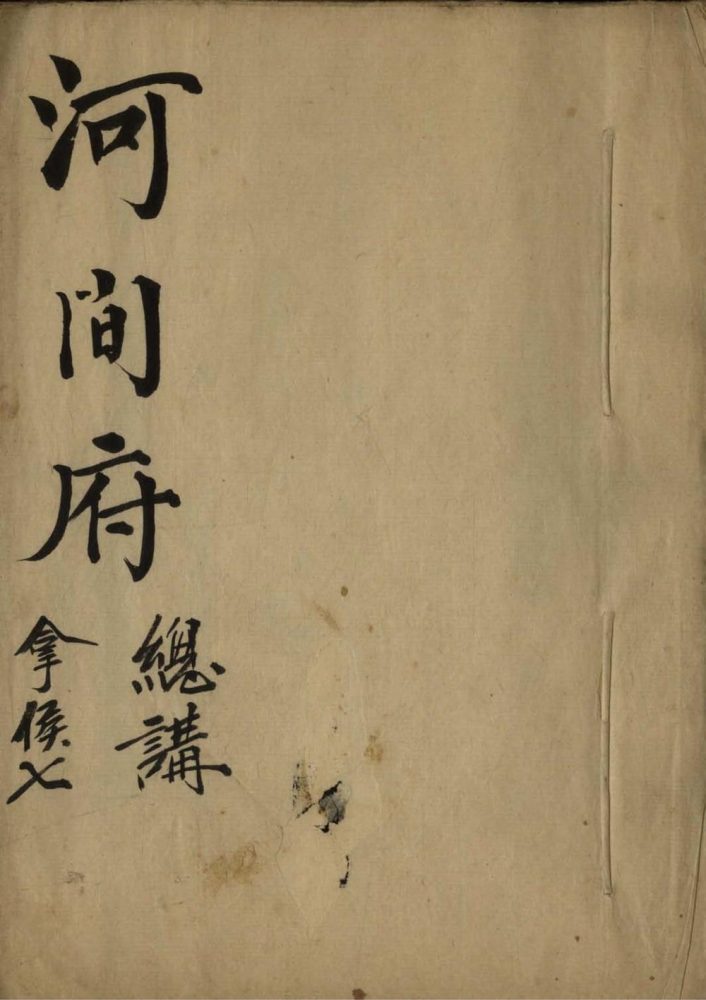 河間府
總講
拿侯七